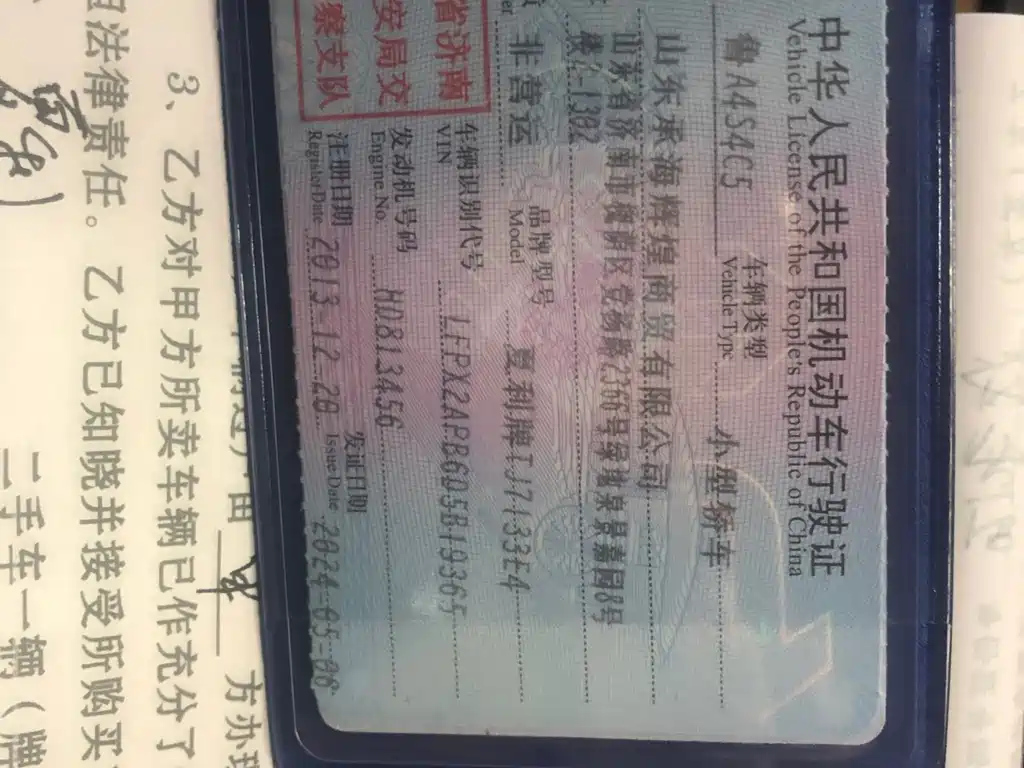 中华人民共和国机动车行驶证
Vehicle License of the People's Republic of China
鲁A4S4C5
车辆类型
Vehicle Type
小型轿车
山东承海辉煌商贸有限公司
山东省济南市槐荫区党杨路2366号绿地泉景嘉园8号
楼2-1302
非营运
品牌型号
Model
夏利牌TJ7133E4
车辆识别代号
VIN
LFPX2APB6D5B19365
发动机号码
Engine No.
H0813456
注册日期
Register Date
2013-12-28
发证日期
Issue Date
2024-05-06
省济南
安局交
察支队
3、乙方对甲方所卖车辆已作充分了
法律责任。乙方已知晓并接受所购买
二手车一辆（牌
方办理